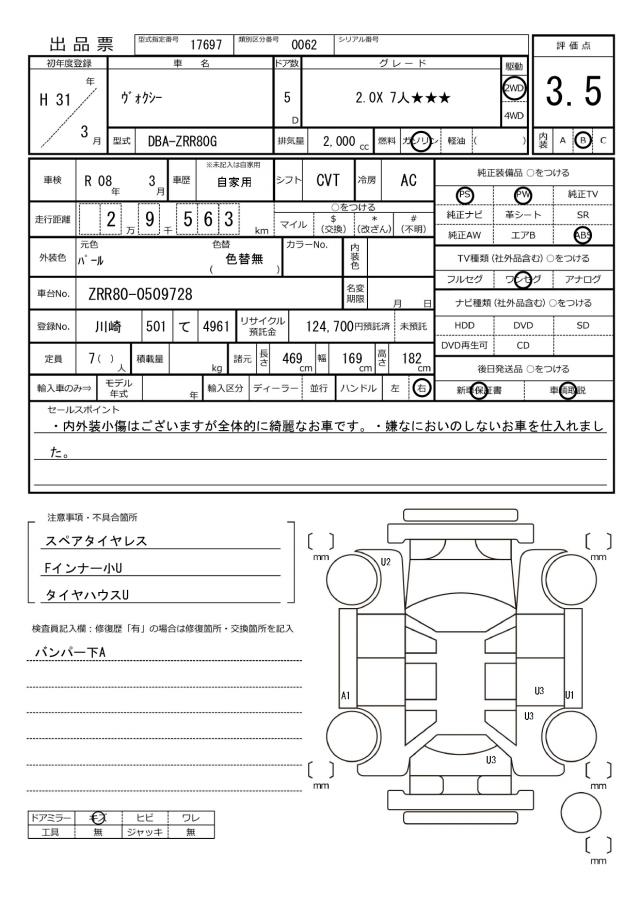 出品票 型式指定番号 17697 類別区分番号 0062 シリアル番号
評価点
3.5
初年度登録 車名 ドア数 グレード 駆動
H 31 年 3 月 ヴォクシー 5 D 2.0X 7人★★★ 2WD 4WD
型式 DBA-ZRR80G 排気量 2,000 cc 燃料 ガソリン 軽油 ( ) 内装 A B C
車検 R 08 年 3 月 車歴 ※未記入は自家用 自家用 シフト CVT 冷房 AC
走行距離 2 万 9 千 5 6 3 km ○をつける
マイル $ (交換) * (改ざん) # (不明)
外装色 元色 パール 色替 ( 色替無 ) カラーNo. 内装色
車台No. ZRR80-0509728 名変期限 月 日
登録No. 川崎 501 て 4961 リサイクル預託金 124,700円預託済 未預託
定員 7( ) 人 積載量 kg 諸元 長さ 469 cm 幅 169 cm 高さ 182 cm
輸入車のみ⇒ モデル年式 年 輸入区分 ディーラー 並行 ハンドル 左 右
純正装備品 ○をつける
PS PW 純正TV
純正ナビ 革シート SR
純正AW エアB ABS
TV種類(社外品含む)○をつける
フルセグ ワンセグ アナログ
ナビ種類(社外品含む)○をつける
HDD DVD SD
DVD再生可 CD
後日発送品 ○をつける
新車保証書 車輌取説
セールスポイント
・内外装小傷はございますが全体的に綺麗なお車です。・嫌なにおいのしないお車を仕入れまし
た。
注意事項・不具合箇所
スペアタイヤレス
Fインナー小U
タイヤハウスU
検査員記入欄:修復歴「有」の場合は修復箇所・交換箇所を記入
バンパー下A
ドアミラー キズ ヒビ ワレ
工具 無 ジャッキ 無
mm mm
U2
A1 U3 U1
U3
U3
mm mm
mm